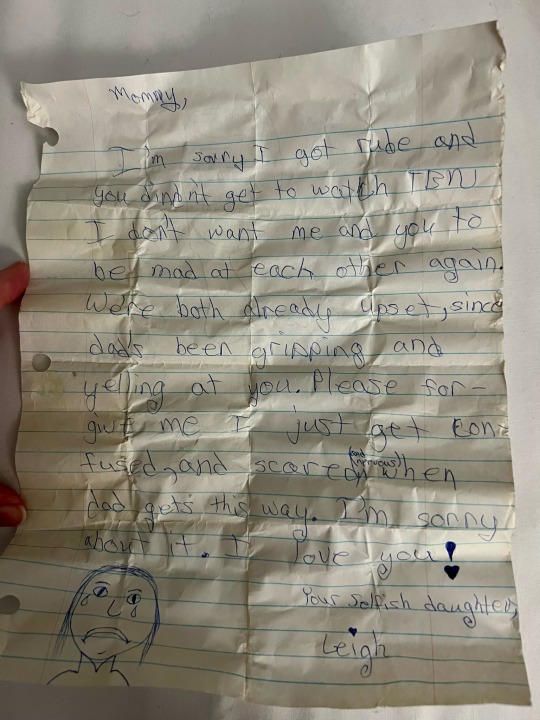 Mommy,
I'm sorry I got rube and
you dindn't get to watch TBN
I don't want me and you to
be mad at each other again.
We're both already upset, since
dad's been gripping and
yelling at you. Please for-
give me I just get con-
fused, and scared (and nervous) when
dad gets this way. I'm sorry
about it. I love you!
Your selfish daughter,
Leigh